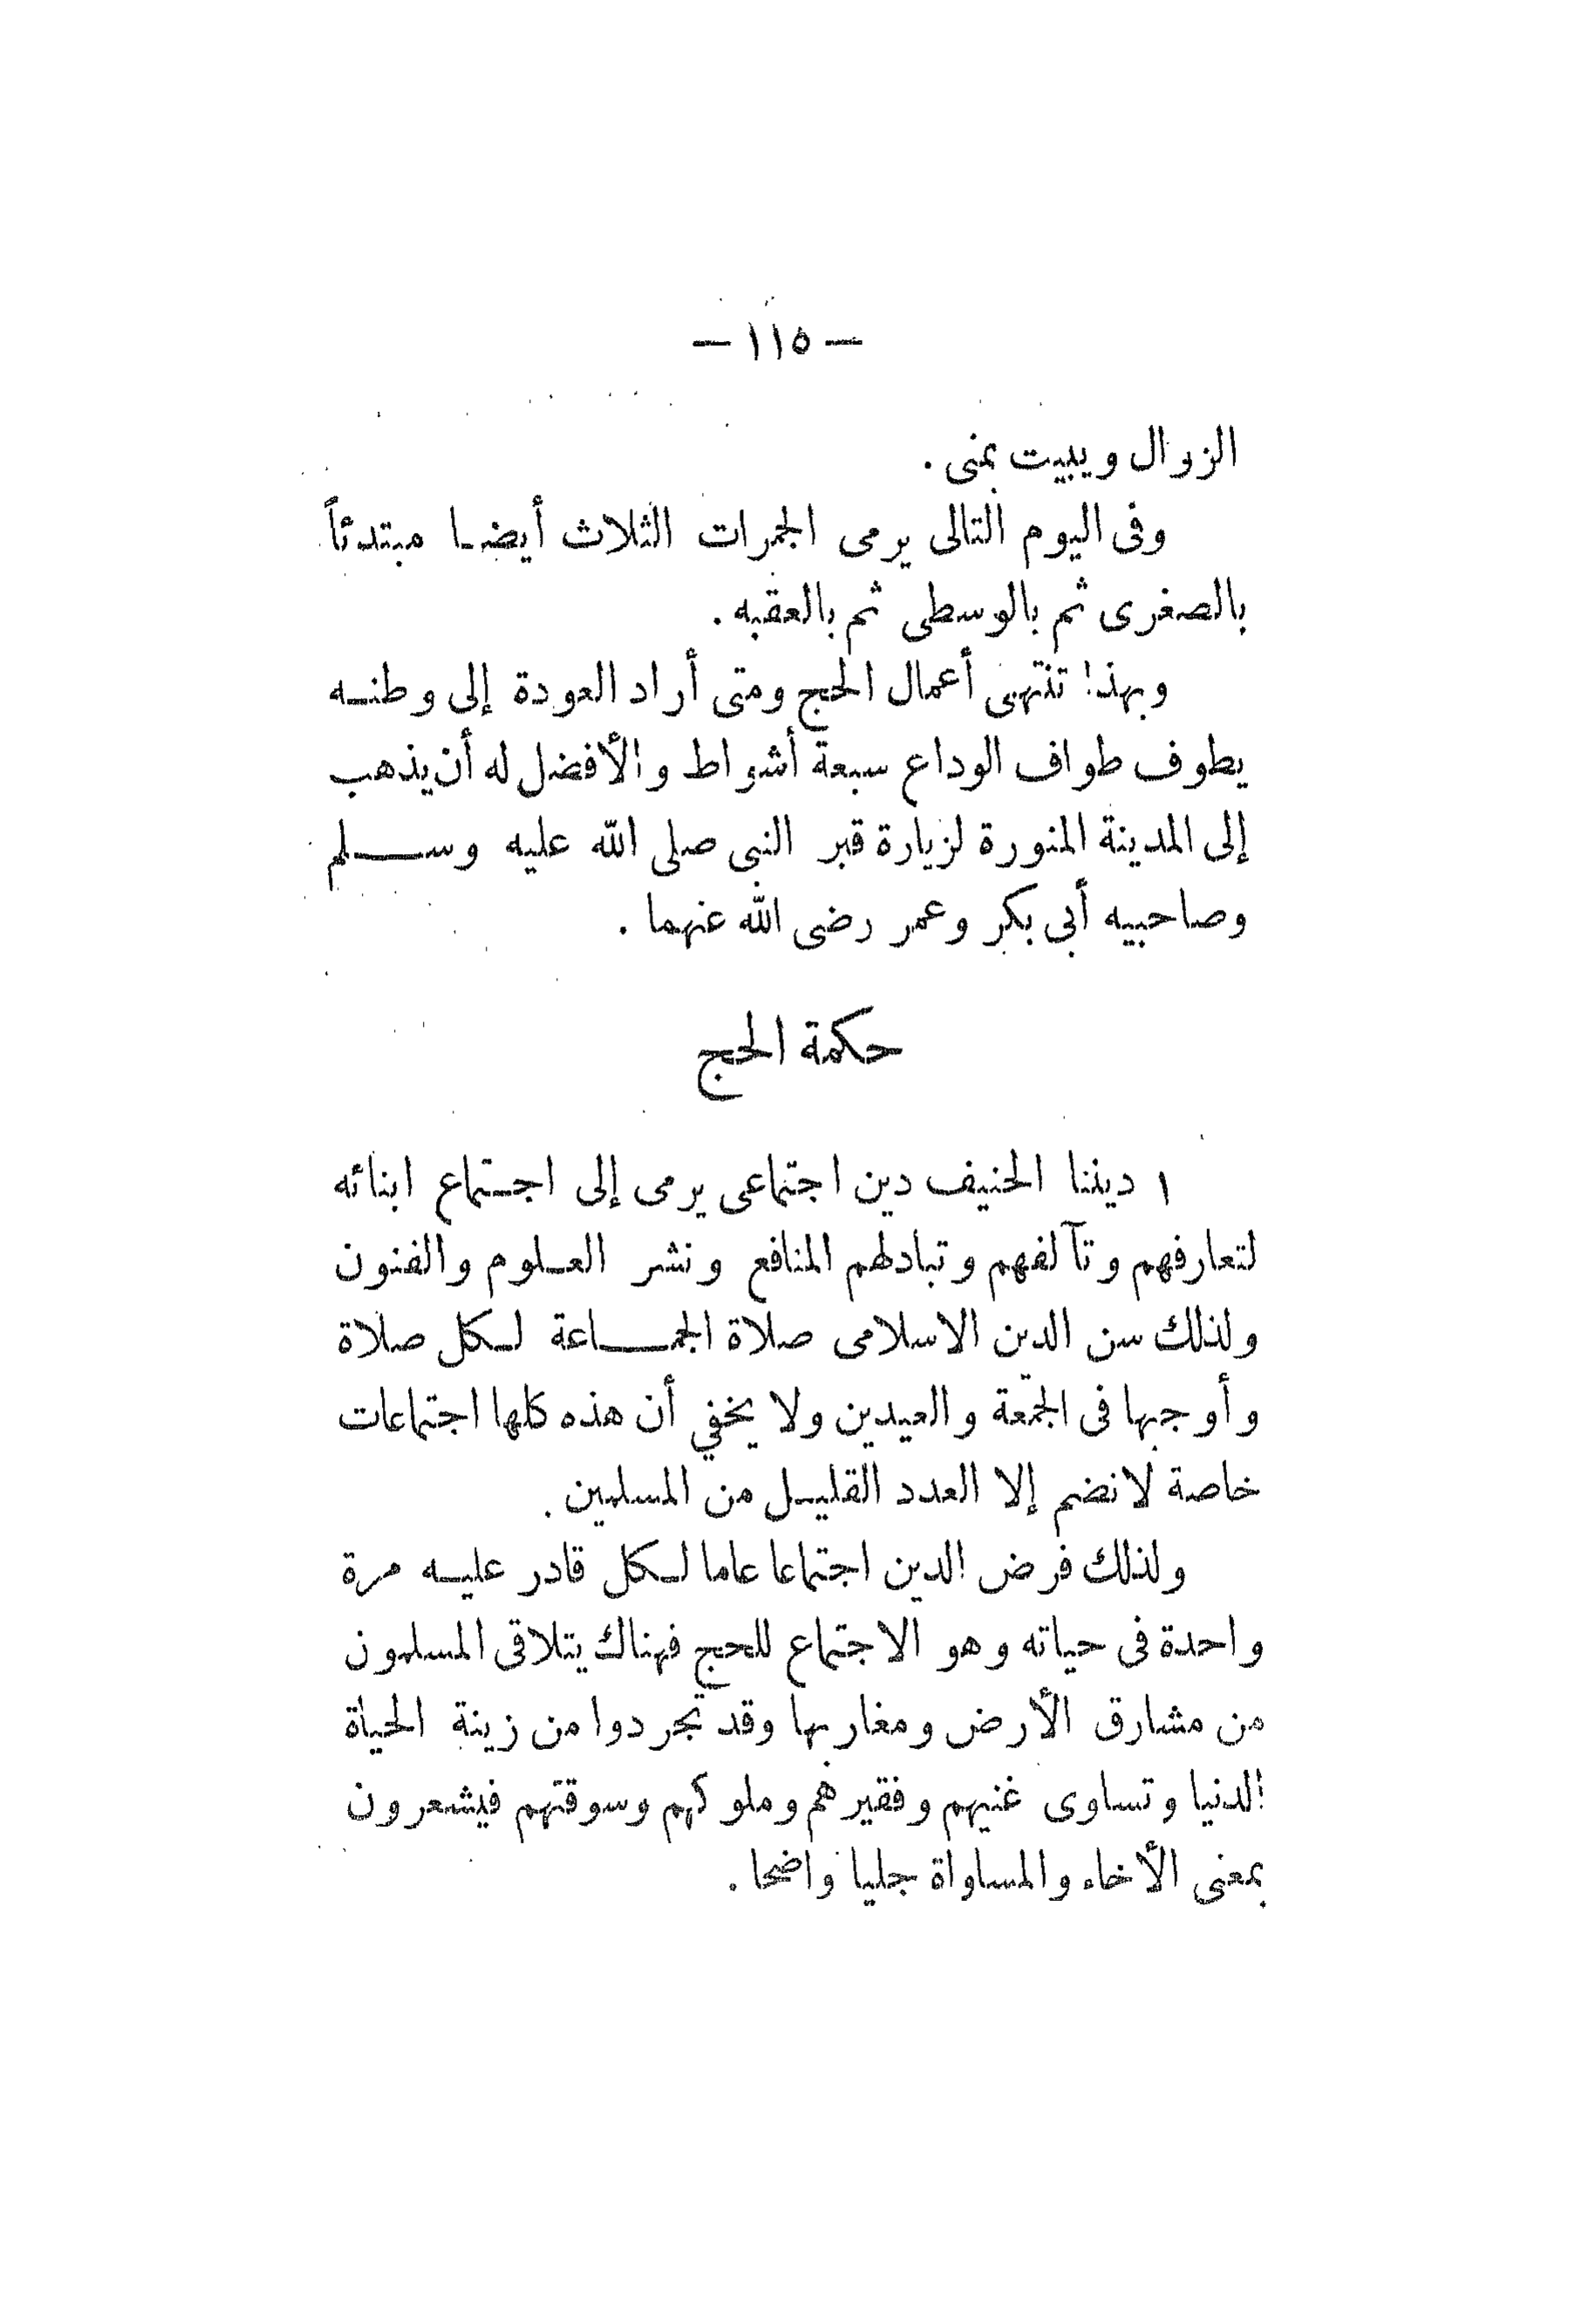 — ١١٥ —
الزوال ويبيت بمنى .
وفى اليوم التالى يرمى الجمرات الثلاث أيضا مبتدئاً
بالصغرى ثم بالوسطى ثم بالعقبه .
وبهذا تنتهى أعمال الحج ومتى أراد العودة إلى وطنه
يطوف طواف الوداع سبعة أشواط والأفضل له أن يذهب
إلى المدينة المنورة لزيارة قبر النبى صلى الله عليه وسلم
وصاحبيه أبى بكر وعمر رضى الله عنهما .
حكمة الحج
١ ديننا الحنيف دين اجتماعى يرمى إلى اجتماع ابنائه
لتعارفهم وتآلفهم وتبادلهم المنافع ونشر العلوم والفنون
ولذلك سن الدين الاسلامى صلاة الجماعة لكل صلاة
وأوجبها فى الجمعة والعيدين ولا يخفي أن هذه كلها اجتماعات
خاصة لانضم إلا العدد القليل من المسلمين .
ولذلك فرض الدين اجتماعا عاما لكل قادر عليه مرة
واحدة فى حياته وهو الاجتماع للحج فهناك يتلاقى المسلمون
من مشارق الأرض ومغاربها وقد تجردوا من زينة الحياة
الدنيا وتساوى غنيهم وفقيرهم وملوكهم وسوقتهم فيشعرون
بمعنى الأخاء والمساواة جليا واضحا .